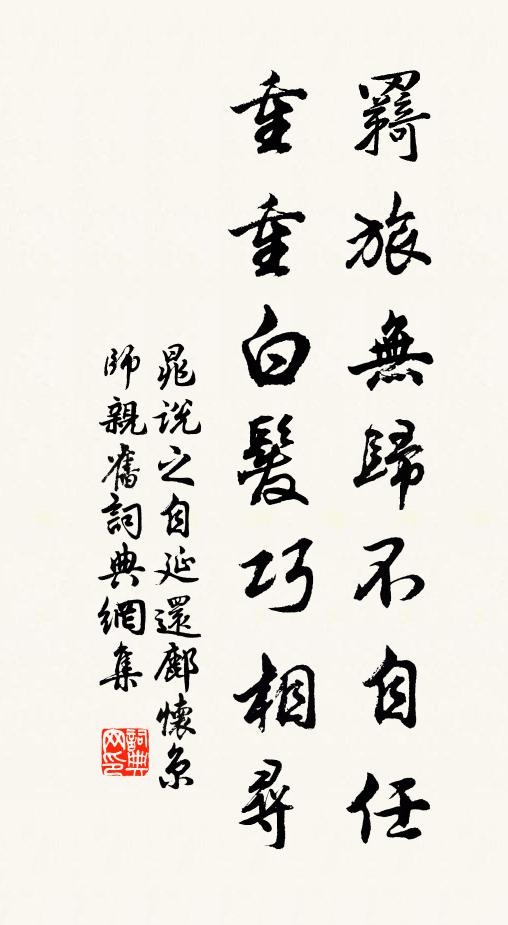 羇旅無歸不自任
重重白髮巧相尋
晁說之自延還鄜懷京
師親舊詞典網集
詞典
网印